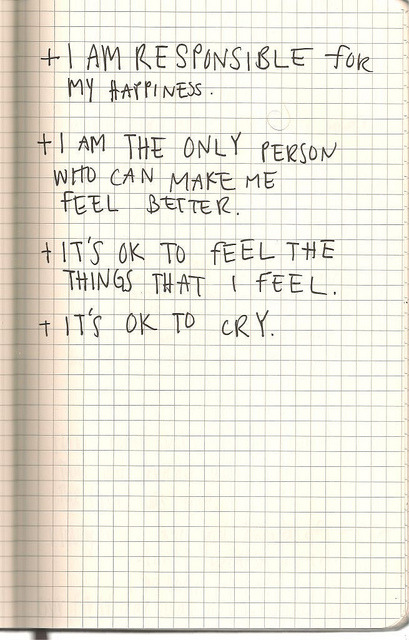 + I AM RESPONSIBLE for
MY HAPPINESS.
+ I AM THE ONLY PERSON
WHO CAN MAKE ME
FEEL BETTER.
+ IT'S OK TO fEEL THE
THINGS THAT I FEEL.
+ IT'S OK TO CRY.